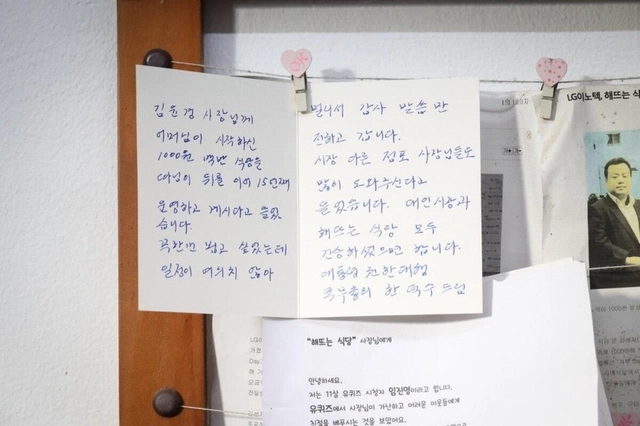 김윤경 사장님께
어머님이 시작하신
1000원 백반 식당을
따님이 뒤를 이어 15년째
운영하고 계시다고 들었
습니다.
꼭 한번 뵙고 싶었는데
일정이 여의치 않아
멀리서 감사 말씀만
전하고 갑니다.
시장 다른 점포 사장님들도
많이 도와주신다고
들었습니다. 대인시장과
해뜨는 식당 모두
건승하셨으면 합니다.
대통령 권한대행
국무총리 한덕수 드림
OK
LG이노텍, 해뜨는 식
"해뜨는 식당" 사장님에게
안녕하세요.
저는 11살 유퀴즈 시청자 임진영이라고 합니다.
유퀴즈에서 사장님이 가난하고 어려운 이웃들에게
친절을 베푸시는 것을 보았어요.